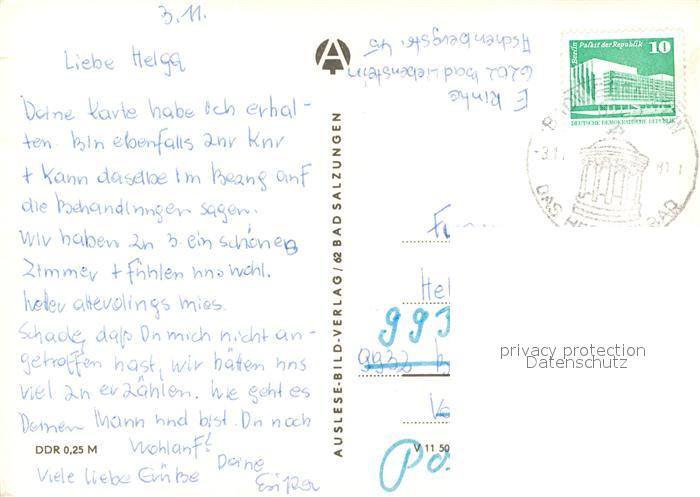 3.11.
Liebe Helga
Deine Karte habe ich erhal-
ten. Bin ebenfalls zur Kur
+ kann dasselbe im Bezug auf
die Behandlungen sagen.
Wir haben zu 3. ein schönes
Zimmer + fühlen uns wohl.
Wetter allerdings mies.
Schade, daß Du mich nicht an-
getroffen hast, wir hätten uns
viel zu erzählen. Wie geht es
Deinem Mann und bist Du noch
wohlauf?
Viele liebe Grüße Deine
DDR 0,25 M
AUSLESE-BILD-VERLAG / 62 BAD SALZUNGEN
E. Rinke
6202 Bad Liebenstein
Aschenbergstr. 45
Berlin Palast der Republik 10
DEUTSCHE DEMOKRATISCHE REPUBLIK
-3.11
DAS
BAD
Hel
993
9932
V 11 50
privacy protection
Datenschutz